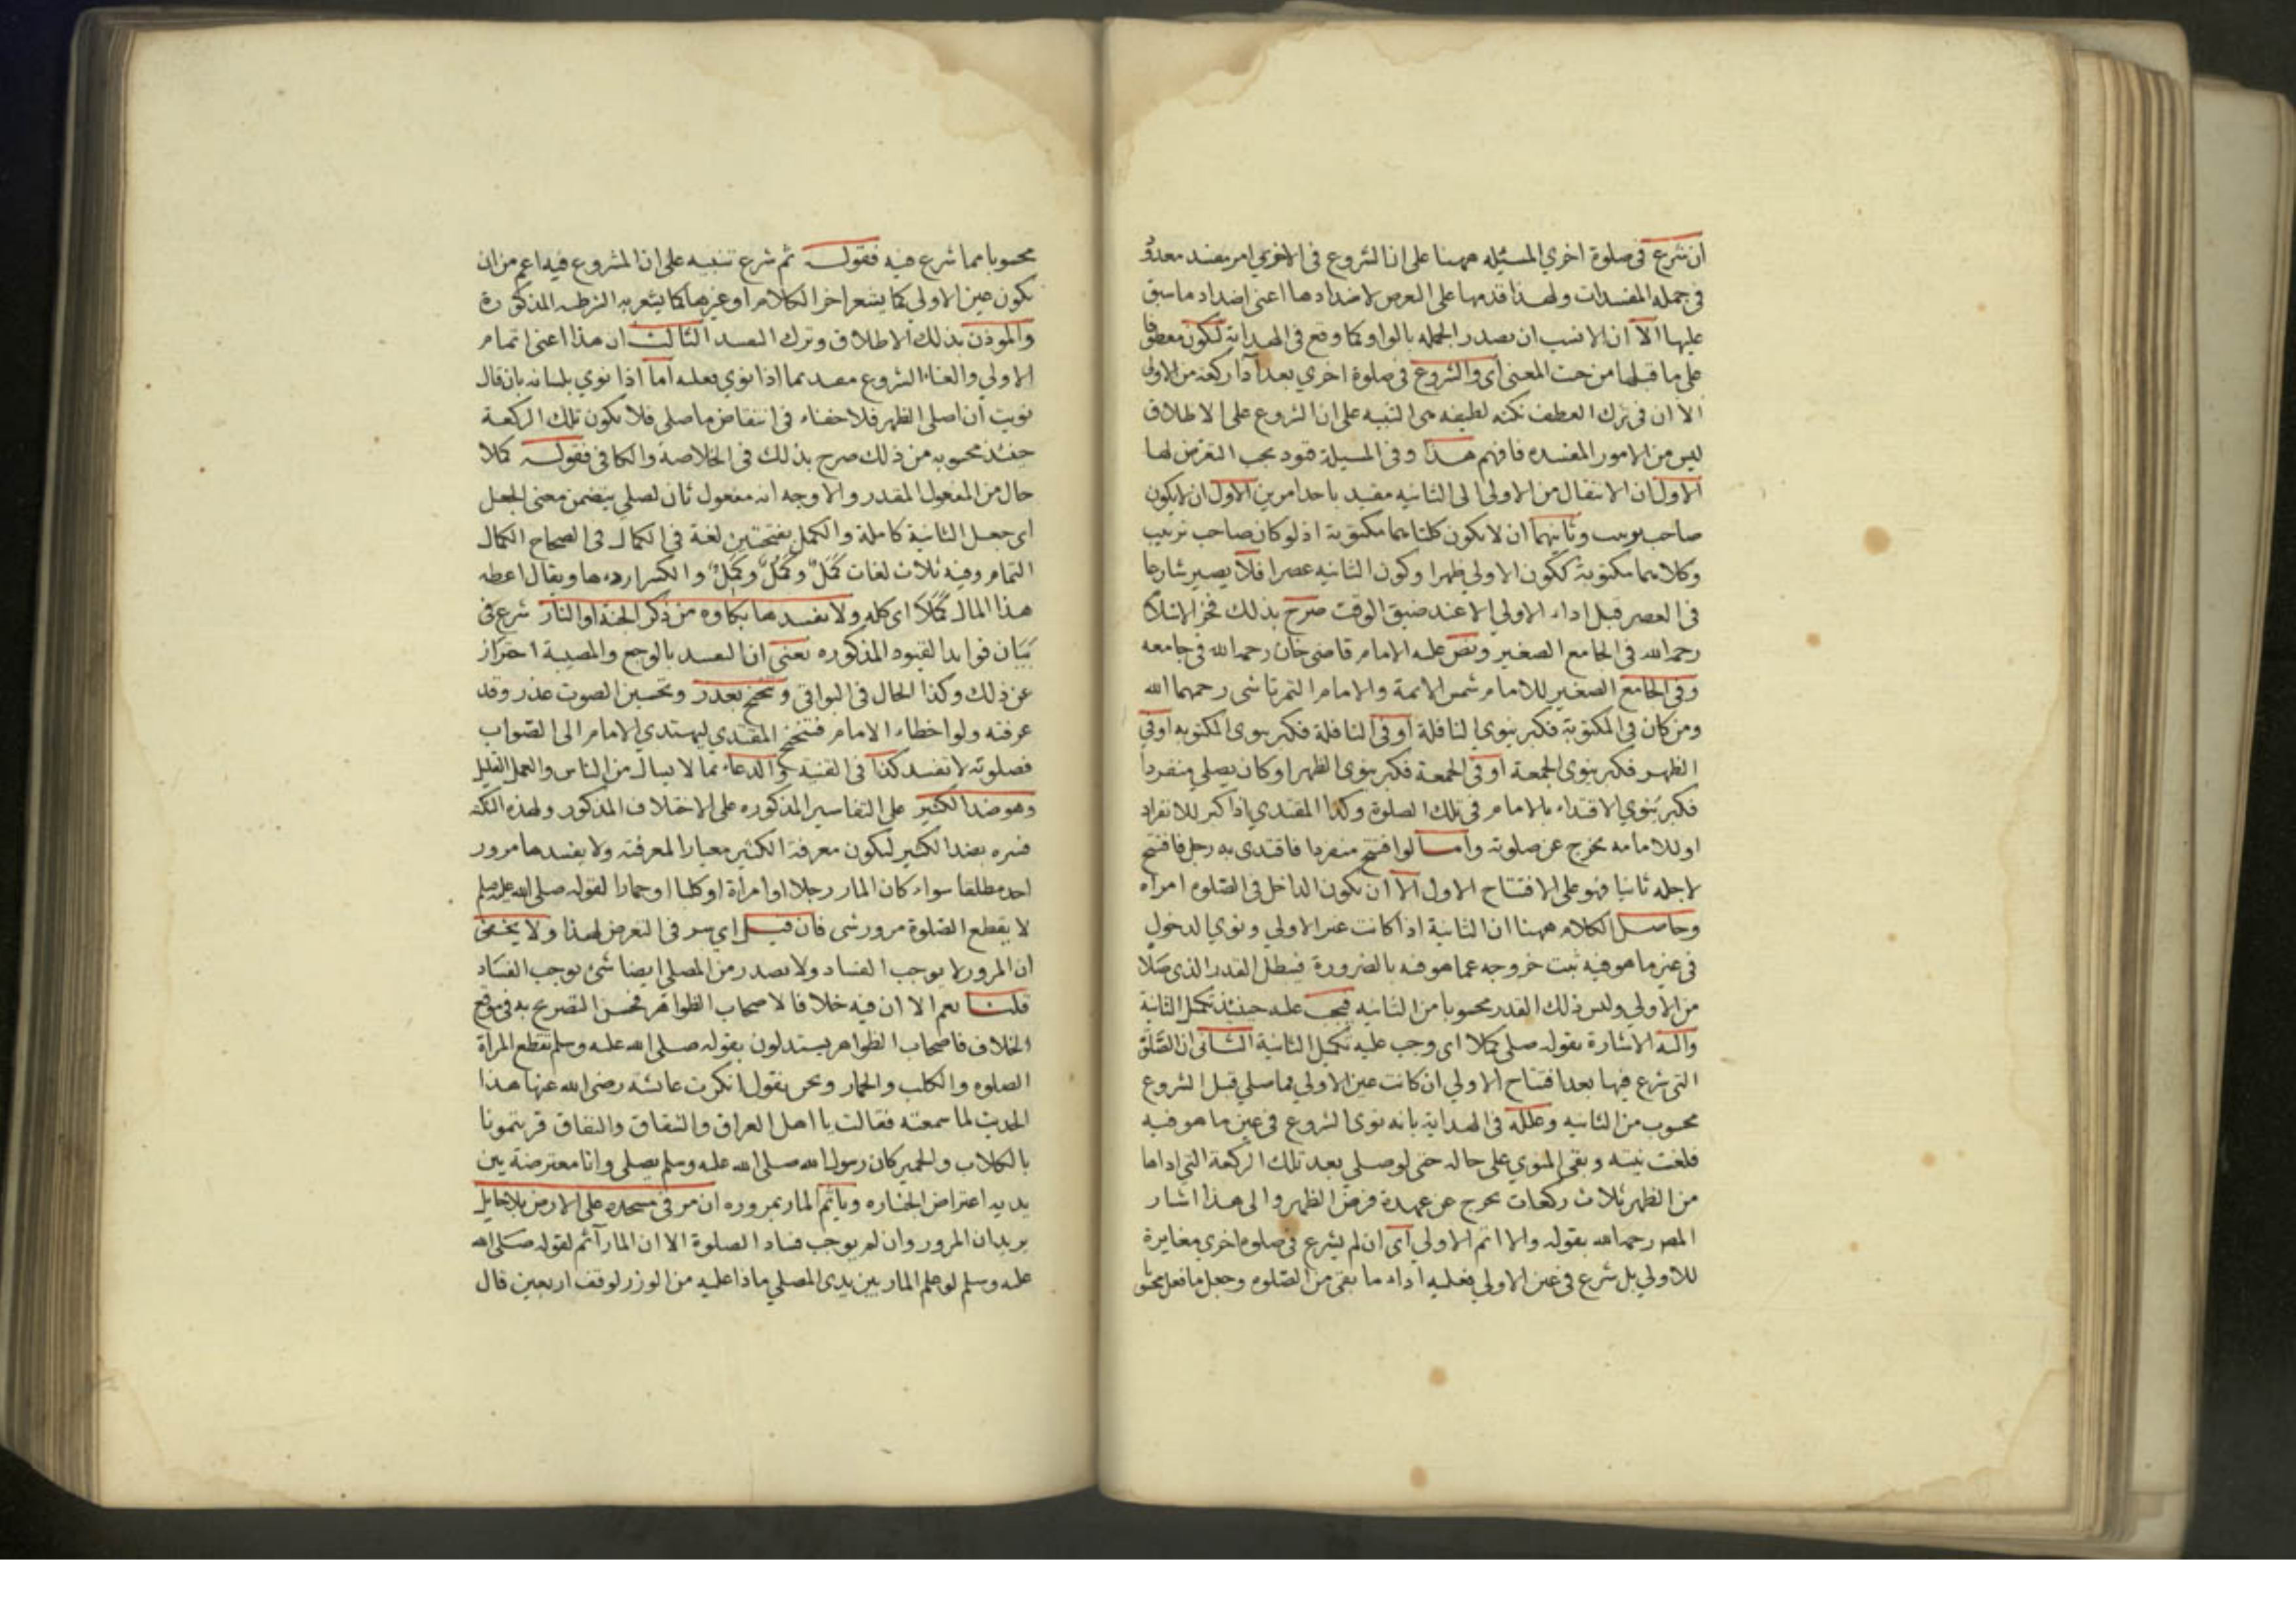 ان شرع في صلوة اخري المسئله ههنا على ان الشروع في الاخري امر مفسد معدود
في جمله المفسدات ولهذا قدمها على العرض لاضدادها اعني اضداد ما سبق
عليها الا ان الانسب ان يصدر الجمله بالواو كما وقع في الهداية لكون معطوفا
على ما قبلها من حيث المعنى اى والشروع في صلوة اخري بعد آدا ركعة من الاولى
الا ان في ترك العطف نكته لطيفه هى التنبيه على ان الشروع على الاطلاق
ليس من الامور المفسده فافهم هذا وفي المسيلة قيود يجب التعرض لها
الاول ان الانتقال من الاولى الى الثانيه مقيد باحد امرين الاول ان لا يكون
صاحب ترتيب وثانيهما ان لا يكون كلتاهما مكتوبة اذ لو كان صاحب ترتيب
وكلاهما مكتوبة ككون الاولي ظهرا وكون الثانيه عصرا فلا يصير شارعا
في العصر قبل اداء الاولي الا عند ضيق الوقت صرح بذلك فخر الاسلام
رحمه الله في الجامع الصغير ونص عليه الامام قاضي خان رحمه الله في جامعه
وفي الجامع الصغير للامام شمس الائمة والامام التمرتاشى رحمهما الله
ومن كان في المكتوبة فكبر ينوي النافلة او في النافلة فكبر ينوى المكتوبه او في
الظهر فكبر ينوى الجمعة او في الجمعة فكبر ينوى الظهر او كان يصلي منفردا
فكبر ينوي الاقتداء بالامام في تلك الصلوة وكذا المقتدي اذا كبر للانفراد
او للامامه يخرج عن صلوته واما لو افتتح منفردا فاقتدى به رجل فافتتح
لاجله ثانيا فهو على الافتتاح الاول الا ان يكون الداخل في الصلوه امراه
وحاصل الكلام ههنا ان الثانية اذا كانت غير الاولي ونوي الدخول
في غير ما هو فيه ثبت خروجه عما هو فيه بالضرورة فيبطل القدر الذي صلا
من الاولي وليس ذلك القدر محسوبا من الثانيه فيجب عليه حينئذ تكميل الثانية
واليه الاشارة بقوله صلى كملا اى وجب عليه تكميل الثانية الثانى ان الصلوة
التى شرع فيها بعد افتتاح الاولي ان كانت عين الاولي فما صلي قبل الشروع
محسوب من الثانيه وعلله في الهداية بانه نوى الشروع في عين ما هو فيه
فلغت نيته وبقى المنوي على حاله حتى لو صلي بعد تلك الركعة التي اداها
من الظهر ثلاث ركعات يخرج عن عهدة فرض الظهر والى هذا اشار
المصر رحمه الله بقوله والا اتم الاولي اى ان لم يشرع في صلوه اخري مغايرة
للاولي بل شرع في عين الاولي فعليه اداء ما بقى من الصلوه وجعل ما فعل محسو
محسوبا مما شرع فيه فقوله ثم شرع تنبيه على ان المشروع فيه اعم من ان
يكون عين الاولي كما يشعر اخر الكلام او غيرها كما يشعر به الشرطيه المذكورة
والموذن بذلك الاطلاق وترك القيد الثالث ان هذا اعنى اتمام
الاولي والغاء الشروع مقيد بما اذا نوي بقلبه اما اذا نوي بلسانه بان قال
نويت ان اصلي الظهر فلا خفاء في انتقاض ما صلى فلا يكون تلك الركعة
حينئذ محسوبه من ذلك صرح بذلك في الخلاصة والكافي فقوله كملا
حال من المفعول المقدر والاوجه انه مفعول ثان لصلي بتضمن معنى الجعل
اى جعل الثانية كاملة والكمل بفتحتين لغة في الكمال في الصحاح الكمال
التمام وفيه ثلاث لغات كَمَلٌ وكَمُلٌ وكَمِلٌ والكسر اردءها ويقال اعطه
هذا المال كملا اى كله ولا يفسدها بكاوه من ذكر الجنة او النار شرع في
بيان فوايد القيود المذكوره يعنى ان القيد بالوجع والمصيبة احتراز
عن ذلك وكذا الحال في البواقي وتنحنح بعذر وتحسين الصوت عذر وقد
عرفته ولو اخطاء الامام فتنحنح المقتدي ليهتدي الامام الى الصواب
فصلوته لا تفسد كذا في القنية والدعاء بما لا يسال من الناس والعمل القليل
وهو ضد الكثير على التفاسير المذكوره على الاختلاف المذكور ولهذه النكته
فسره بضد الكثير ليكون معرفة الكثير معيارا لمعرفته ولا يفسدها مرور
احد مطلقا سواء كان المار رجلا او امراة او كلبا او حمارا لقوله صلى الله عليه وسلم
لا يقطع الصلوة مرور شى فان قيل اي سر في التعرض لهذا ولا يخفى
ان المرور لا يوجب الفساد ولا يصدر من المصلي ايضا شئ يوجب الفساد
قلت نعم الا ان فيه خلافا لاصحاب الظواهر فحسن التصريح به في موقع
الخلاف فاصحاب الظواهر يستدلون بقوله صلى الله عليه وسلم تقطع المراة
الصلوه والكلب والحمار ونحن نقول انكرت عائشة رضى الله عنها هذا
الحديث لما سمعته فقالت يا اهل العراق والشقاق والنفاق قرنتمونا
بالكلاب والحمير كان رسول الله صلى الله عليه وسلم يصلى وانا معترضة بين
يديه اعتراض الجنازه وياثم المار بمروره ان مر في مسجده على الارض بلا حايل
يريد ان المرور وان لم يوجب فساد الصلوة الا ان المار آثم لقوله صلى الله
عليه وسلم لو علم المار بين يدى المصلي ماذا عليه من الوزر لوقف اربعين قال